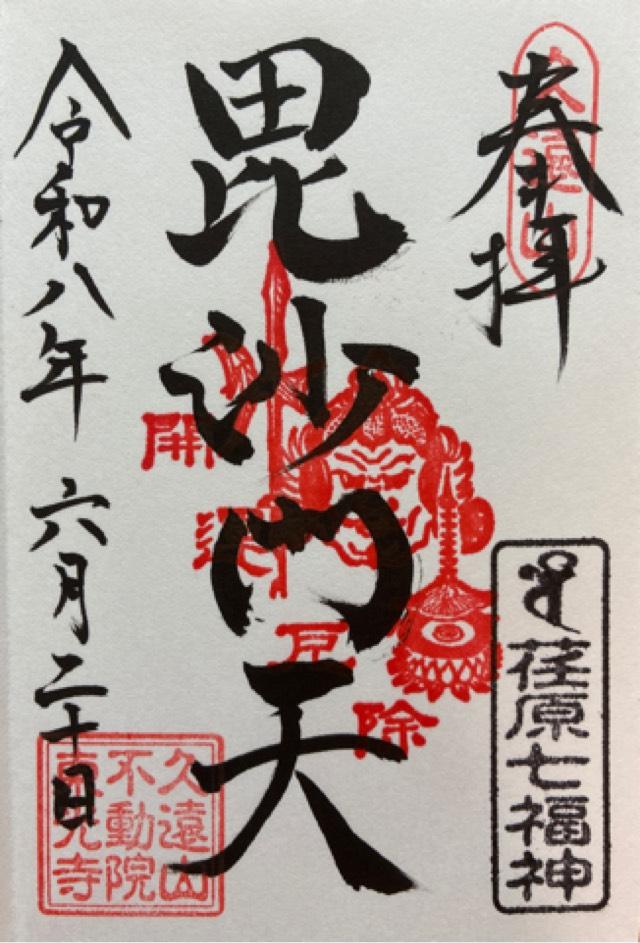 奉拝
久遠山
毘沙門天
開運厄除
荏原七福神
令和八年 六月二十日
久遠山
不動院
東光寺